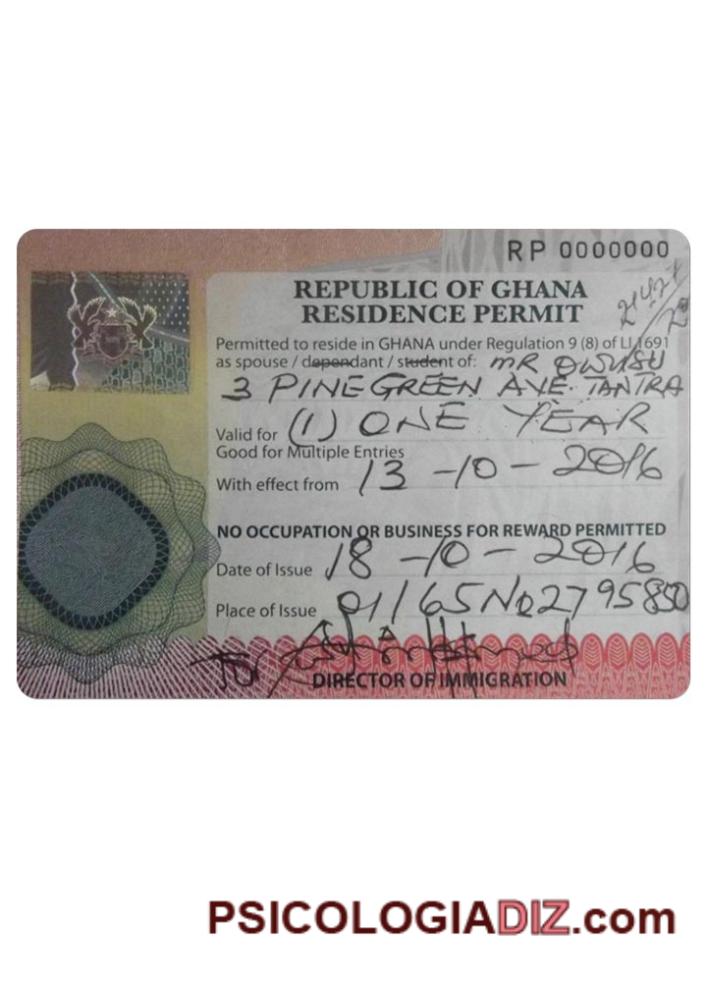 RP 0000000
REPUBLIC OF GHANA
RESIDENCE PERMIT
Permitted to reside in GHANA under Regulation 9 (8) of LI 1691
as spouse / dependant / student of: MR OWUSU
3 PINE GREEN AVE. TANTRA
Valid for (1) ONE YEAR
Good for Multiple Entries
With effect from 13-10-2016
NO OCCUPATION OR BUSINESS FOR REWARD PERMITTED
Date of Issue 18-10-2016
Place of Issue 01/165 No 2795850
DIRECTOR OF IMMIGRATION
PSICOLOGIADIZ.com